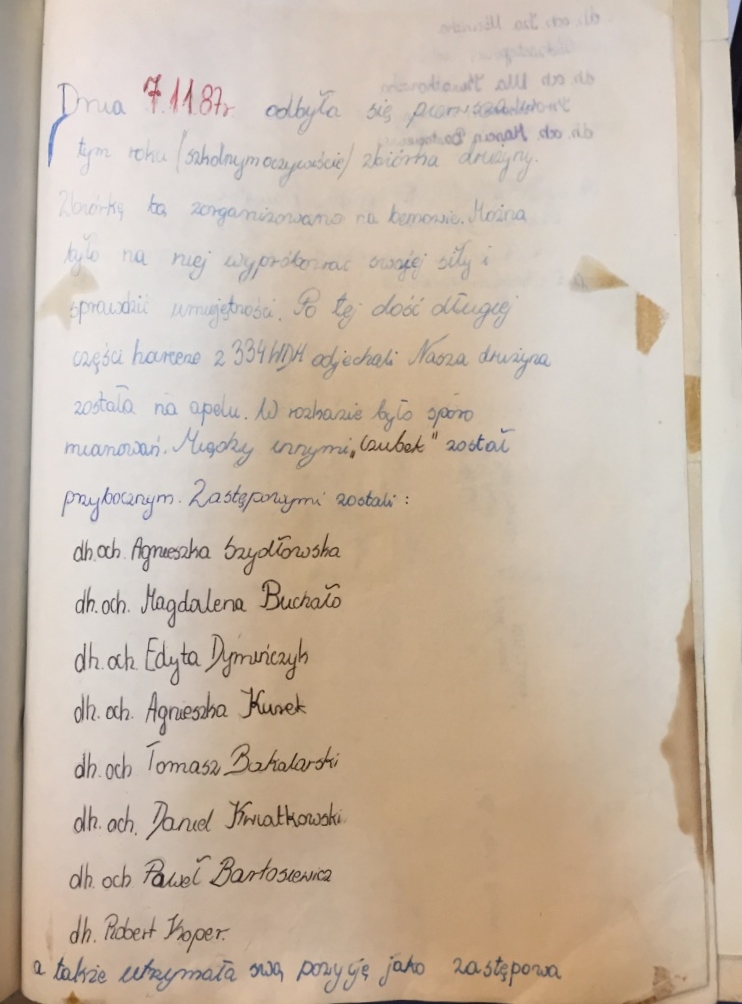 Dnia 7.11.87r. odbyła się pierwsza w
tym roku /szkolnym oczywiście/ zbiórka drużyny.
Zbiórkę tą zorganizowano na bemowie. Można
było na niej wypróbować swojej siły i
sprawdzić umiejętności. Po tej dość długiej
części harcerze z 334 WDH odjechali Nasza drużyna
została na apelu. W rozkazie było sporo
mianowań. Między innymi „Czubek" został
przybocznym. Zastępowymi zostali:
dh. och. Agnieszka Szydłowska
dh. och. Magdalena Buchało
dh. och. Edyta Dymińczyk
dh. och. Agnieszka Kurek
dh. och Tomasz Bakalarski
dh. och. Daniel Kwiatkowski
dh. och Paweł Bartosiewicz
dh. Robert Koper.
a także utrzymała swą pozycję jako zastępowa